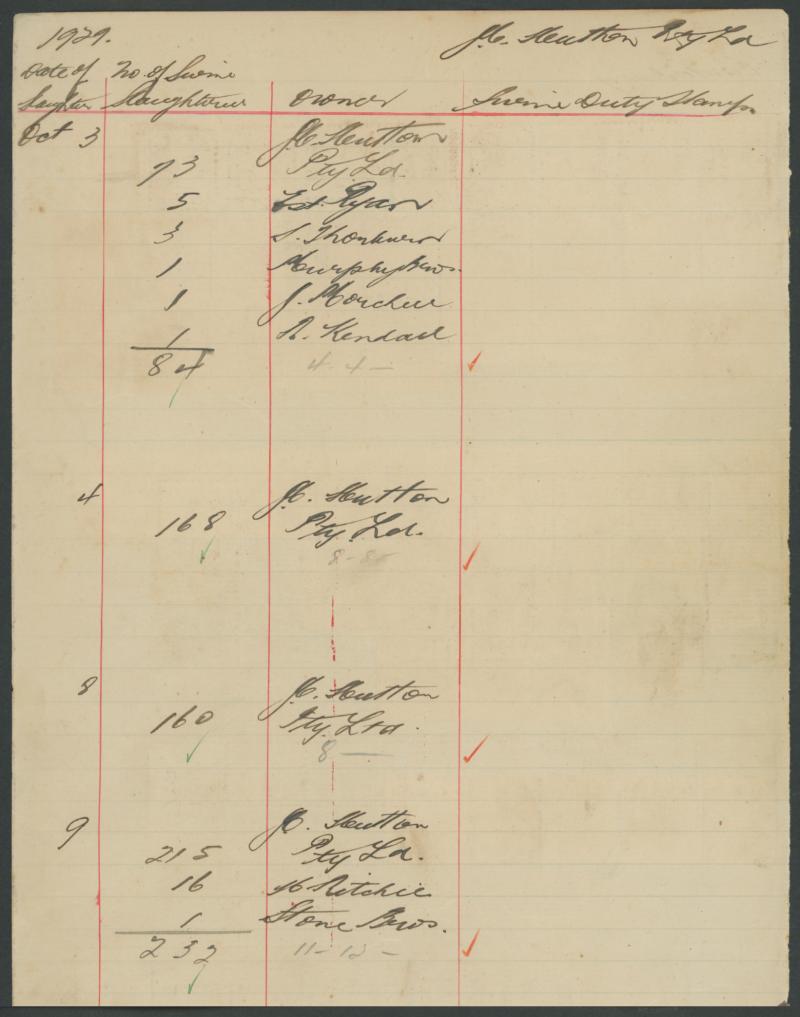 1929. J.C. Hutton Pty Ld
Date of No. of Swine
Slaughter Slaughtered Owner Swine Duty Stamps
Oct 3 J.C. Hutton
73 Pty. Ld.
5 Ryan
3 S.
1 Murphy Bros.
1 J.
1 A. Kendall
84 4-4-
4 J.C. Hutton
168 Pty. Ld.
8-8-
8 J.C. Hutton
160 Pty. Ltd.
8 —
9 J.C. Hutton
215 Pty Ld.
16 Ritchie
1 Stone Bros.
232 11-12-